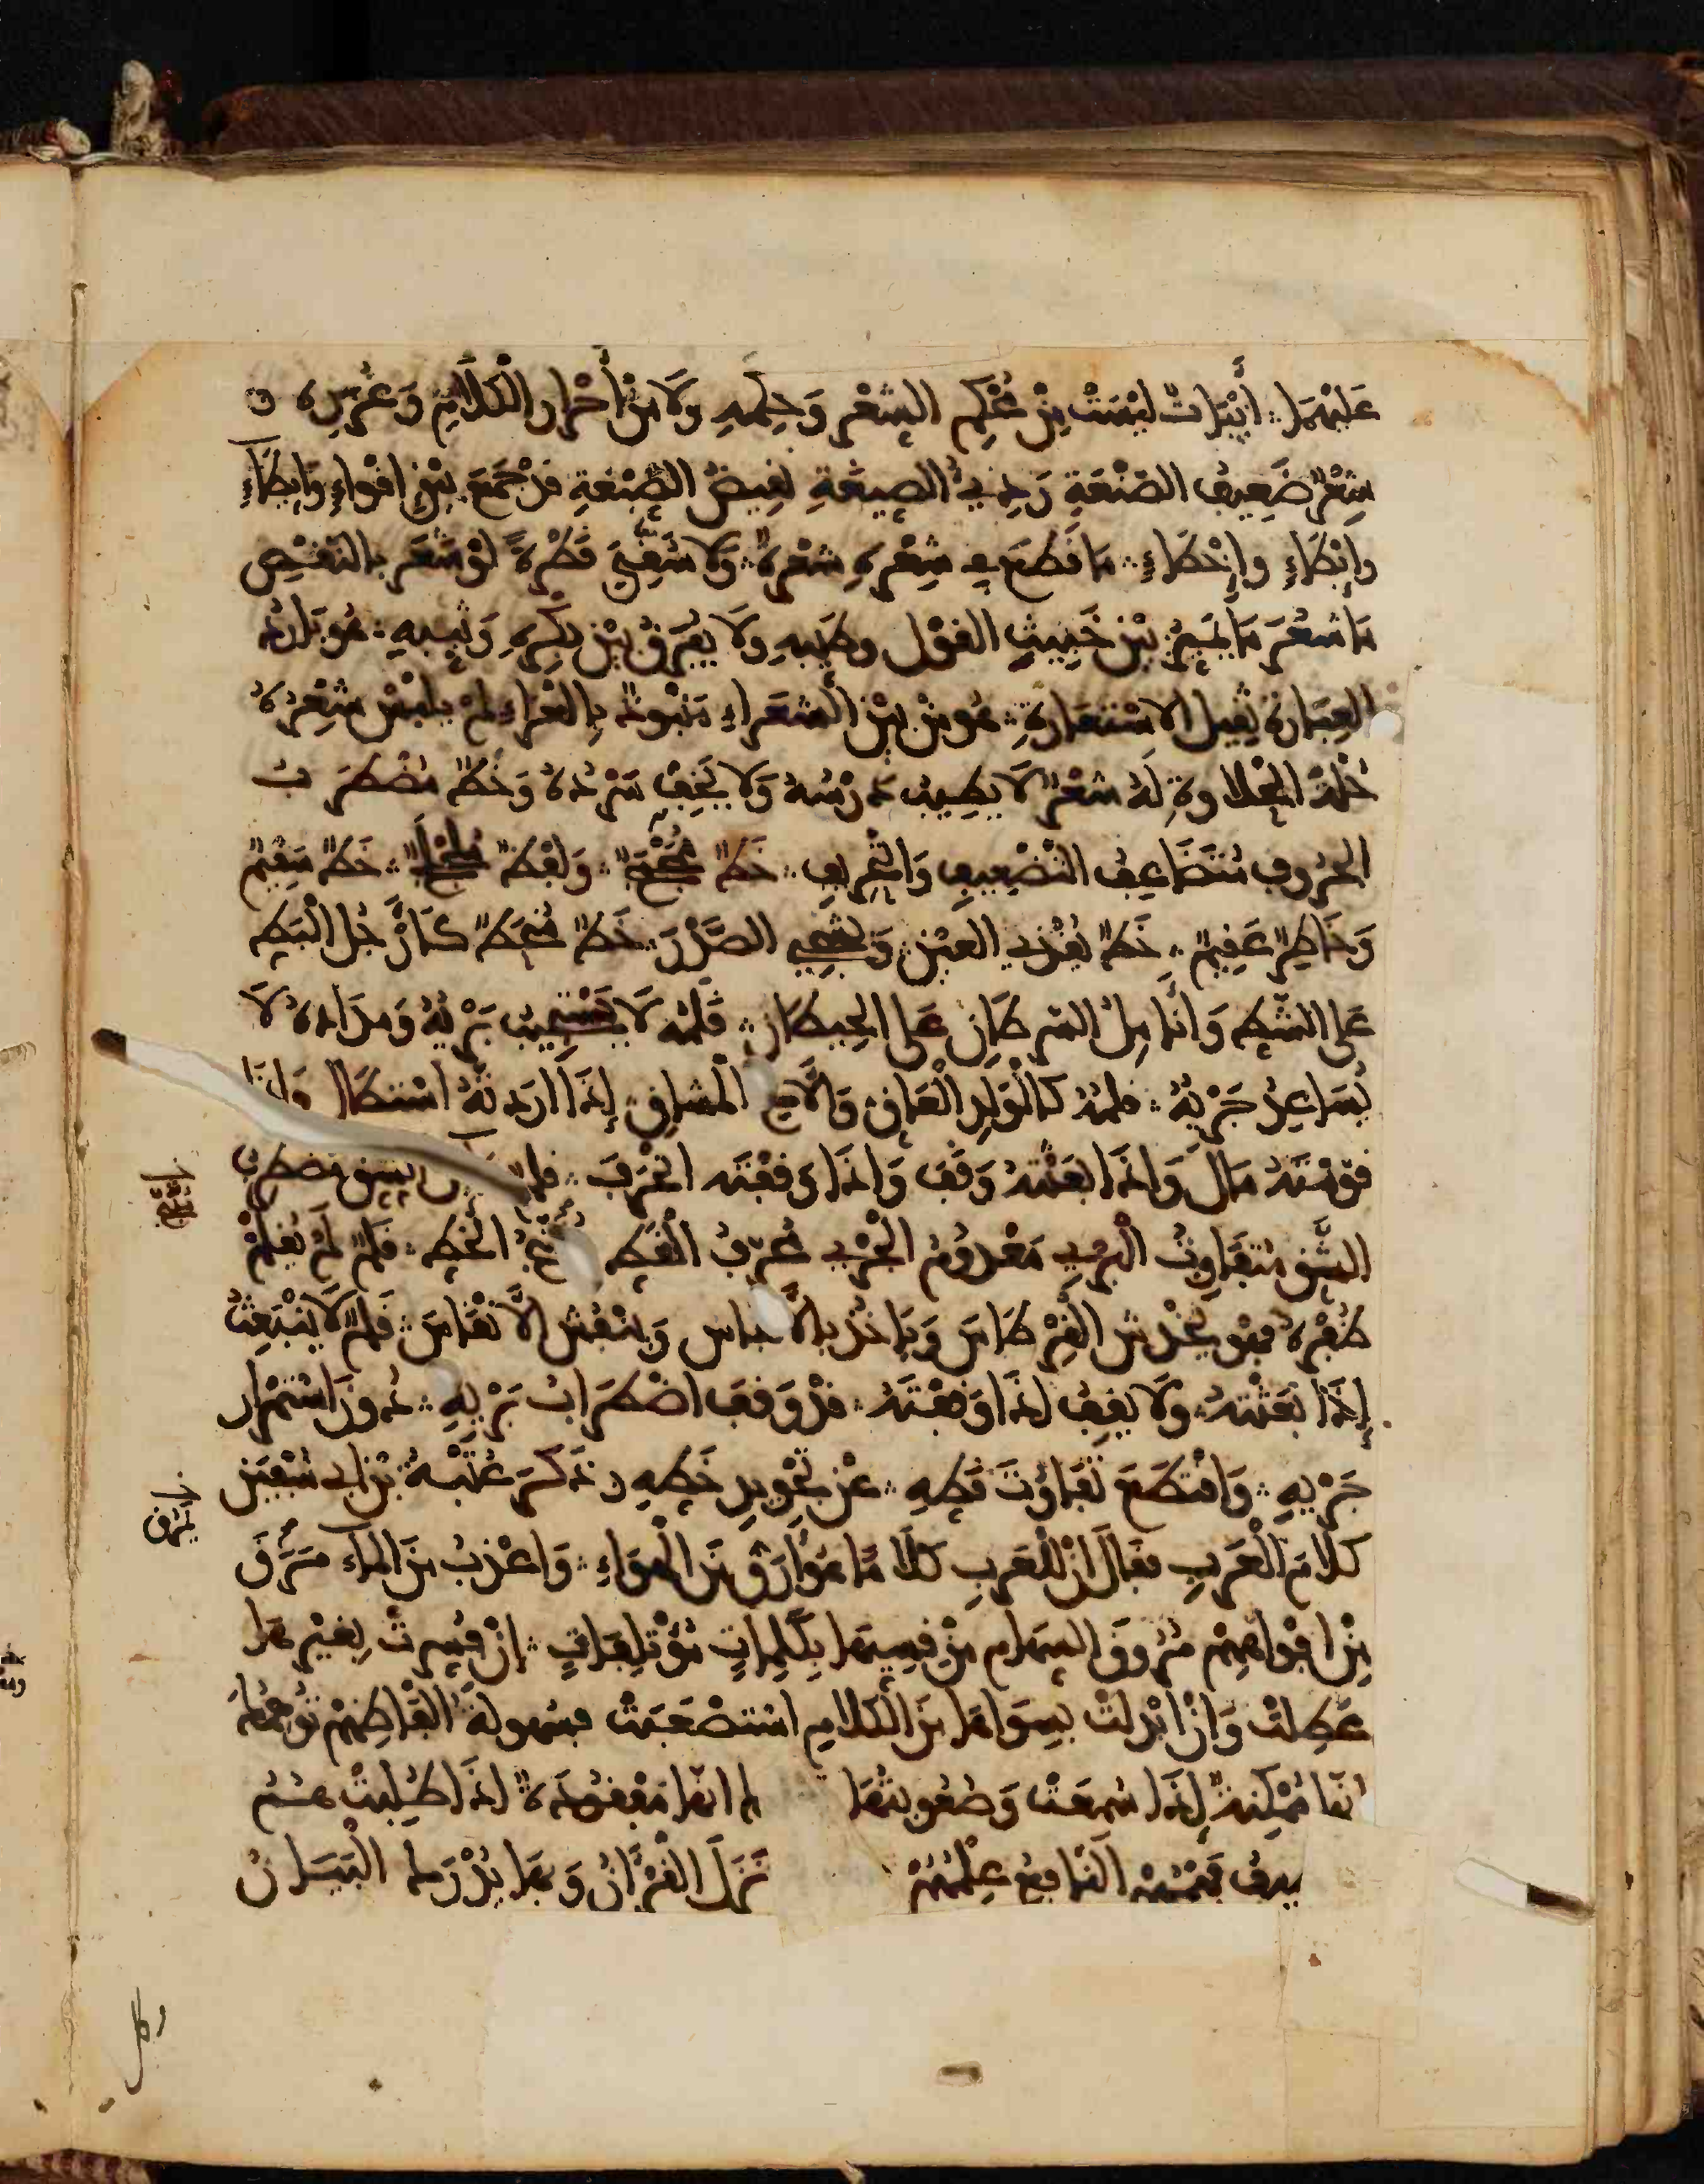 عَلَيْهَا أَبْيَاتٌ لَيْسَتْ مِنْ مُحْكَمِ الشِّعْرِ وَحِكَمِهِ وَلَا مِنْ أَحْرَارِ الْكَلَامِ وَغُرَرِهِ
شِعْرٌ ضَعِيفُ الصَّنْعَةِ رَدِيءُ الصِّيغَةِ بَغِيضُ الصِّبْغَةِ قَدْ جَمَعَ بَيْنَ إِقْوَاءٍ وَإِيطَاءٍ
وَإِبْطَاءٍ وَإِخْطَاءٍ مَا قَطَعَ فِي شِعْرِهِ شَعْرَةً وَلَا سُقِيَ قَطْرَةً لَوْ شَعَرَ بِالنَّقْصِ
مَا شَعَرَ مَا يُمَيِّزُ بَيْنَ خَبِيثِ الْقَوْلِ وَطَيِّبِهِ وَلَا يُفَرِّقُ بَيْنَ بِكْرِهِ وَثَيِّبِهِ هُوَ بَارِدُ
الْعِبَارَةِ ثَقِيلُ الِاسْتِعَارَةِ هُوَ مِنْ بَيْنِ الشُّعَرَاءِ مَنْبُوذٌ بِالْعَرَاءِ لَمْ يَلْبَسْ شِعْرُهُ
حُلَّةَ الْحَلَاوَةِ لَهُ شِعْرٌ لَا يَطِيبُ دَرْسُهُ وَلَا يَخِفُّ سَرْدُهُ وَخَطٌّ مُضْطَرِبُ
الْحُرُوفِ مُتَضَاعِفُ التَّضْعِيفِ وَالتَّحْرِيفِ خَطٌّ مُجْمَجٌ وَلَفْظٌ مُلَجْلَجٌ خَطٌّ سَقِيمٌ
وَخَاطِرٌ عَقِيمٌ خَطٌّ يُقْذِي الْعَيْنَ وَيُشْجِي الصَّدْرَ خَطٌّ مُنْحَطٌّ كَأَرْجُلِ الْبَطِّ
عَلَى الشَّطِّ وَأَنَامِلِ السَّرَطَانِ عَلَى الْحِيطَانِ قَلَمُهُ لَا يَسْتَجِيبُ بَرْيُهُ وَمِدَادُهُ لَا
يُسَاعِدُ جَرْيُهُ قَلَمُهُ كَالْوَلَدِ الْعَاقِّ وَالْأَخِ الْمُشَاقِّ إِذَا أَرَدْتَهُ اسْتَطَالَ وَإِذَا
قَوَّمْتَهُ مَالَ وَإِذَا بَعَثْتَهُ وَقَفَ وَإِذَا وَقَفْتَهُ انْحَرَفَ قَلَمٌ مُضْطَرِبُ
الشَّقِّ مُتَفَاوِتُ الْبَرْيِ مَعْدُومُ الْجَرْيِ مُحَرَّفُ الْقَطِّ الْخَطِّ قَلَمٌ لَمْ يُقَلَّمْ
ظُفْرُهُ فَهْوَ يَخْدِشُ الْقِرْطَاسَ وَيَأْخُذُ بِالْأَنْفَاسِ وَيَنْفُشُ الْأَنْقَاسَ قَلَمٌ لَا يَنْبَعِثُ
إِذَا بَعَثْتَهُ وَلَا يَقِفُ إِذَا وَقَفْتَهُ قَدْ وَقَفَ اضْطِرَابُ بَرْيِهِ دُونَ اسْتِمْرَارِ
جَرْيِهِ وَاقْتَطَعَ تَفَاوُتُ قَطِّهِ عَنْ تَجْوِيدِ خَطِّهِ وَذَكَرَ عُتْبَةُ بْنُ أَبِي سُفْيَانَ
كَلَامَ الْعَرَبِ فَقَالَ إِنَّ لِلْعَرَبِ كَلَامًا هُوَ أَرَقُّ مِنَ الْهَوَاءِ وَأَعْذَبُ مِنَ الْمَاءِ مَرَقَ
مِنْ أَفْوَاهِهِمْ مُرُوقَ السِّهَامِ مِنْ قِسِيِّهَا بِكَلِمَاتٍ مُؤْتَلِفَاتٍ إِنْ فُسِّرَتْ بِغَيْرِهَا
عَطِلَتْ وَإِنْ أُبْدِلَتْ بِسِوَاهَا مِنَ الْكَلَامِ اسْتَصْعَبَتْ فَسُهُولَةُ أَلْفَاظِهِمْ تُوهِمُكَ
أَنَّهَا مُمْكِنَةٌ إِذَا سُمِعَتْ وَصُعُوبَتُهَا أَنَّهَا مَفْقُودَةٌ إِذَا طُلِبَتْ هُمُ
النَّافِعُ عِلْمُهُمْ نَزَلَ الْقُرْآنُ وَبِهَا يُدْرَكُ الْبَيَانُ